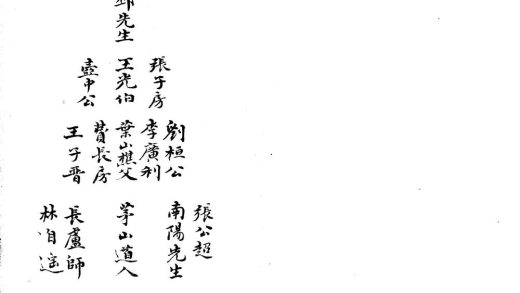 先生
張子房
王光伯
壺中公
劉桓公
李廣利
葉山樵父
費長房
王子晉
張公超
南陽先生
茅山道人
長盧師
林